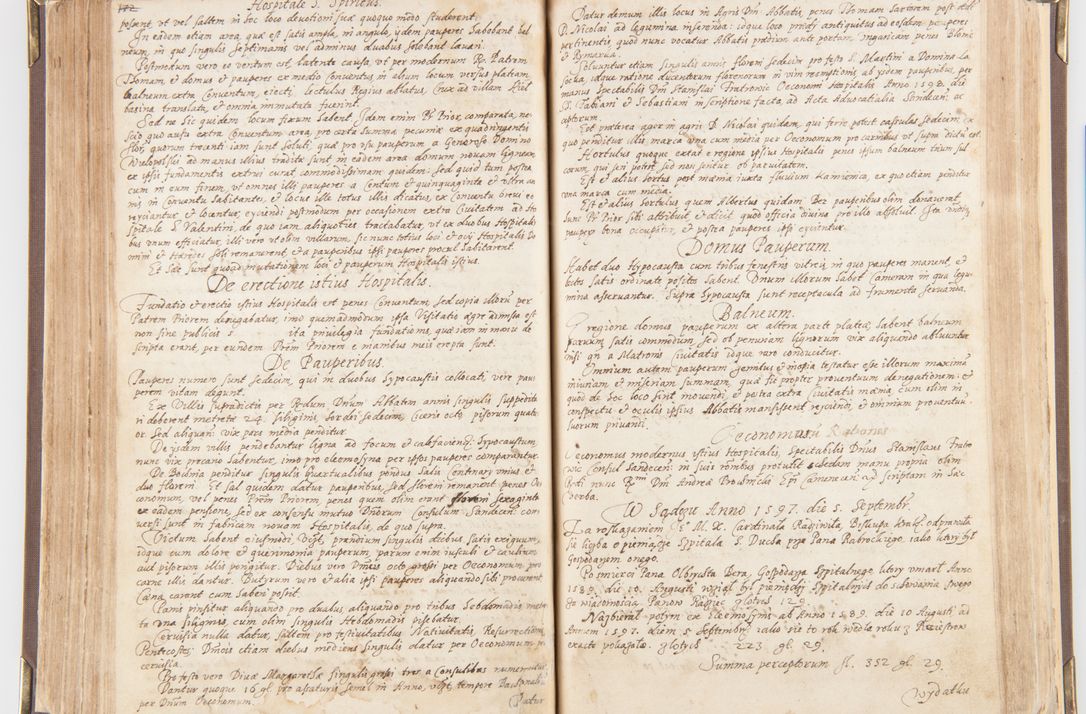 172. Hospitale S. Spiritus.
possent, ut vel saltem in hoc loco devotioni suæ quoquo modo studerent.
In eadem etiam area, quæ est satis ampla, in angulo, ijdem pauperes habebant bal
neum, in quo singulis septimanis vel ad minus duabus solebant lavari.
Postmodum vero eo ventum est, latente causa, ut per modernum R. Patrem
Thomam, et domus et pauperes ex medio Conventus in alium locum versus plateam
balneum extra Conventum, eiecti, lectulus Regius ablatus, Crux ad villam Kiel
basina translata, et omnia immutata fuerint.
Sed ne sic quidem locum fixum habent. Idem enim Pr Prior, comparata, ne
scio quo ausu extra Conventum area, pro certa summa pecuniæ ex quadringentis
flor, quorum trecenti iam sunt soluti, qua pro usu pauperum a Generoso Domino
Wielopolski ad manus illius traditæ sunt in eadem area domum novam ligneam
ex ipsis fundamentis extrui curat commodissimam quidem: Sed quid tum postea
cum in eum finem, ut omnes illi pauperes a Centum et quinquaginta et ultra an
nis in Conventu habitantes, et locus ille totus illis dicatus, ex Conventu brevi ex
reijciantur et loventur, eijciendi postmodum per occasionem extra Civitatem ad Ho
spitale S. Valentini, de quo iam aliquoties tractabatur, ut ex duobus Hospitali
bus unum efficiatur, illi vero ut olim villarum, sic nunc totius loci et ovij Hospitalis Do
mini et Hæredes soli remanerent, et a pauperibus ipsi pauperes procul habitarent.
Et hæc sunt quoad mutationem loci et pauperum Hospitalis istius.
De erectione istius Hospitalis.
Fundatio et erectio istius Hospitalis est penes Conventum, sed copia illorum per
Patrem Priorem denegabatur, imo quemadmodum ipsa Visitatio ægre admissa est
non sine publicis ita privilegia fundationis, quæ iam in manu de
scripta erant, per eundem Prem Priorem e manibus meis erepta sunt.
De Pauperibus.
Pauperes numero sunt sedecim, qui in duobus hypocaustis collocati, vere pau
perem vitam degunt.
Ex Villis supradictis per Rndum Dnum Abbatem annis singulis suppedita
ri deberent mensuræ 24. siliginis, hordei sedecim, ciceris octo pisorum quatu
or sed aliquan: vix pars media penditur.
De ijsdem villis pendebantur ligna ad focum et calefaciend: hypocaustum
nunc vix precario habentur, imo pro eleemosyna per ipsos pauperes comparantur.
De Bochnia penditur singulis quartualibus pondus salis Centenary unius et
duo floreni. Et sal quidem datur pauperibus, sed floreni remanent penes Oe
conomum, vel penes Prem Priorem, penes quem olim erant floreni sexaginta
ex eadem pensione, sed ex consensu mutuo Dnorum Consulum Sandecen: con
versi sunt in fabricam novam Hospitalis, de quo supra.
Victum habent eiusmodi Vzpt, prandium singulis diebus satis exiguum,
idque cum dolore et querimonia pauperum, parum enim iusculi et caulium
aut pisorum illis ponitur. Diebus vero Dnicis octo grossi per Oeconomum pro
carne illis dantur. Butyrum vero et alia ipsi pauperes aliquando sibi procurent
Cœna carent cum habere possent.
Panis pinsitur aliquando pro duabus, aliquando pro tribus hebdomadis mensu
ta una siliginis, cum olim singulis hebdomadis piscbatur.
Cervisia nulla datur, saltem pro festivitatibus Nativitatis, Resurrectionis
Pentecostes: Dnicis etiam diebus medijs singulis datur per Oeconomum pro
cervisia.
Pro festo vero Divæ Margarethæ singulis grossi tres a Consulibus numerantur
Dantur quoque 10 gl. pro assatura semel in Anno, vzpt tempore Bacchanalior
per Dnum Oeconomum.
Datur
Datur demum illis locus in Agris Dni Abbatis, penes Thomam Sartorem post ædem
D. Nicolai ad legumina inserenda: idque loco prædij antiquitus ad eosdem pauperes
pertinentis, quod nunc vocatur Abbatis prædium ante portam Ungaricam penes Blonie
et Rymaria.
Solvuntur etiam singulis annis floreni sedecim pro festo S. Martini a Domina La
socka, idque ratione ducentorum florenorum in vim reemptionis ab ijsdem pauperibus, per
manus Spectabilis Dni Stanislai Fratronic Oeconomi Hospitalis Anno 1593. die
SS. Fabiani et Sebastiani inscriptione facta, ad Acta Advocatialia Sandecen: ac
ceptorum.
Est præterea ager in agris D. Nicolai quidam, qui ferre potest capsulas sedecim, ex
quo penditur illis marca una cum media per Oeconomum pro carnibus ut supra dictum est.
Hortulus quoque extat e regione istius Hospitalis penes ipsum balneum trium sul
corum, qui seri potest sed non seritur ob parvitatem.
Est et alius hortus post mænia iuxta fluvium Kamienica, ex quo etiam penditur
una marca cum media.
Est et alius hortulus quem Albertus quidam Bez pauperibus olim donaverat,
hunc Pr Prior sibi attribuit et dicit quod officia divina pro illo absolvit. Ita undique
pauper: bona occupantur, et postea pauperes ipsi eijcientur.
Domus Pauperum.
Habet duo Hypocausta cum tribus fenestris vitreis in quo pauperes manent, et
lectos satis ordinate positos habent. Unum illorum habet Cameram in qua legu
mina asservantur. Supra hypocausta sunt receptacula ad frumenta servanda.
Balneum.
E regione domus pauperum ex altera parte plateæ, habent balneum
parvum satis commodum, sed ob penuriam lignorum vix aliquando abluuntur
nisi qn a Matronis Civitatis idque raro conducitur.
Omnium autem pauperum gemitus et inopia testatur esse illorum maximam
iniuriam et miseriam summam, quæ fit propter proventuum denegationem: et
quod de hoc loco sint movendi, et postea extra Civitatis mænia, cum olim in
conspectu et oculis ipsius Abbatis mansissent reijciendi, et omnium proventu
suorum privandi.
Oeconomus: Rationes
Oeconomus modernus istius Hospitalis, Spectabilis Dnus Stanislaus Frate
wic Consul Sandecen: in suis rombus protulit schedam manu propria olim
Rndi nunc Rmi Dni Andreæ Prochnicki Epi Camenecen: scriptam in hæc
verba.
W Sądczu Anno 1597. die 5. Septembr.
Za roskazaniem Jº M. X. Cardinala Radziwiła, Biskupa Krak. odprawiła
się liczba z pieniędzy Szpitala S. Ducha prze Pana Rabrockiego, iako który był
Gospodarzem onego.
Po śmierci Pana Olbrychta Beza Gospodarza Szpitalnego, ktory umarł Anno
1589. die 10. Augusti wziął był pieniędzy Szpitalnych do schowania swego
za wiadomością Panow Raiziec złotych 129.
Nazbierał potym ex Eleemosynis ab Anno 1589. die 10 Augusti ad
Annum 1597. diem 5 Septembr. iako się to rok wedle roku z Rejestrów
exacte pokazało. złotych 223 gl. 29.
Summa perceptorum fl. 352 gl. 29.
Wydatku